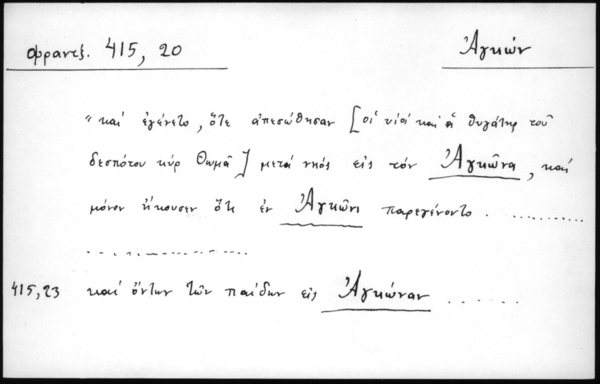 Φραντζ. 415, 20
Ἀγκών
"καί ἐγένετο, ὅτε ἀπεσώθησαν [οἱ υἱοί καί ἡ θυγάτηρ τοῦ
δεσπότου κύρ Θωμᾶ] μετά νηός εἰς τόν Ἀγκῶνα, καί
μόνον ἤκουσεν ὅτι ἐν Ἀγκῶνι παρεγένοντο ............
....................
415,23 καί ὄντων τῶν παίδων εἰς Ἀγκώναν ......